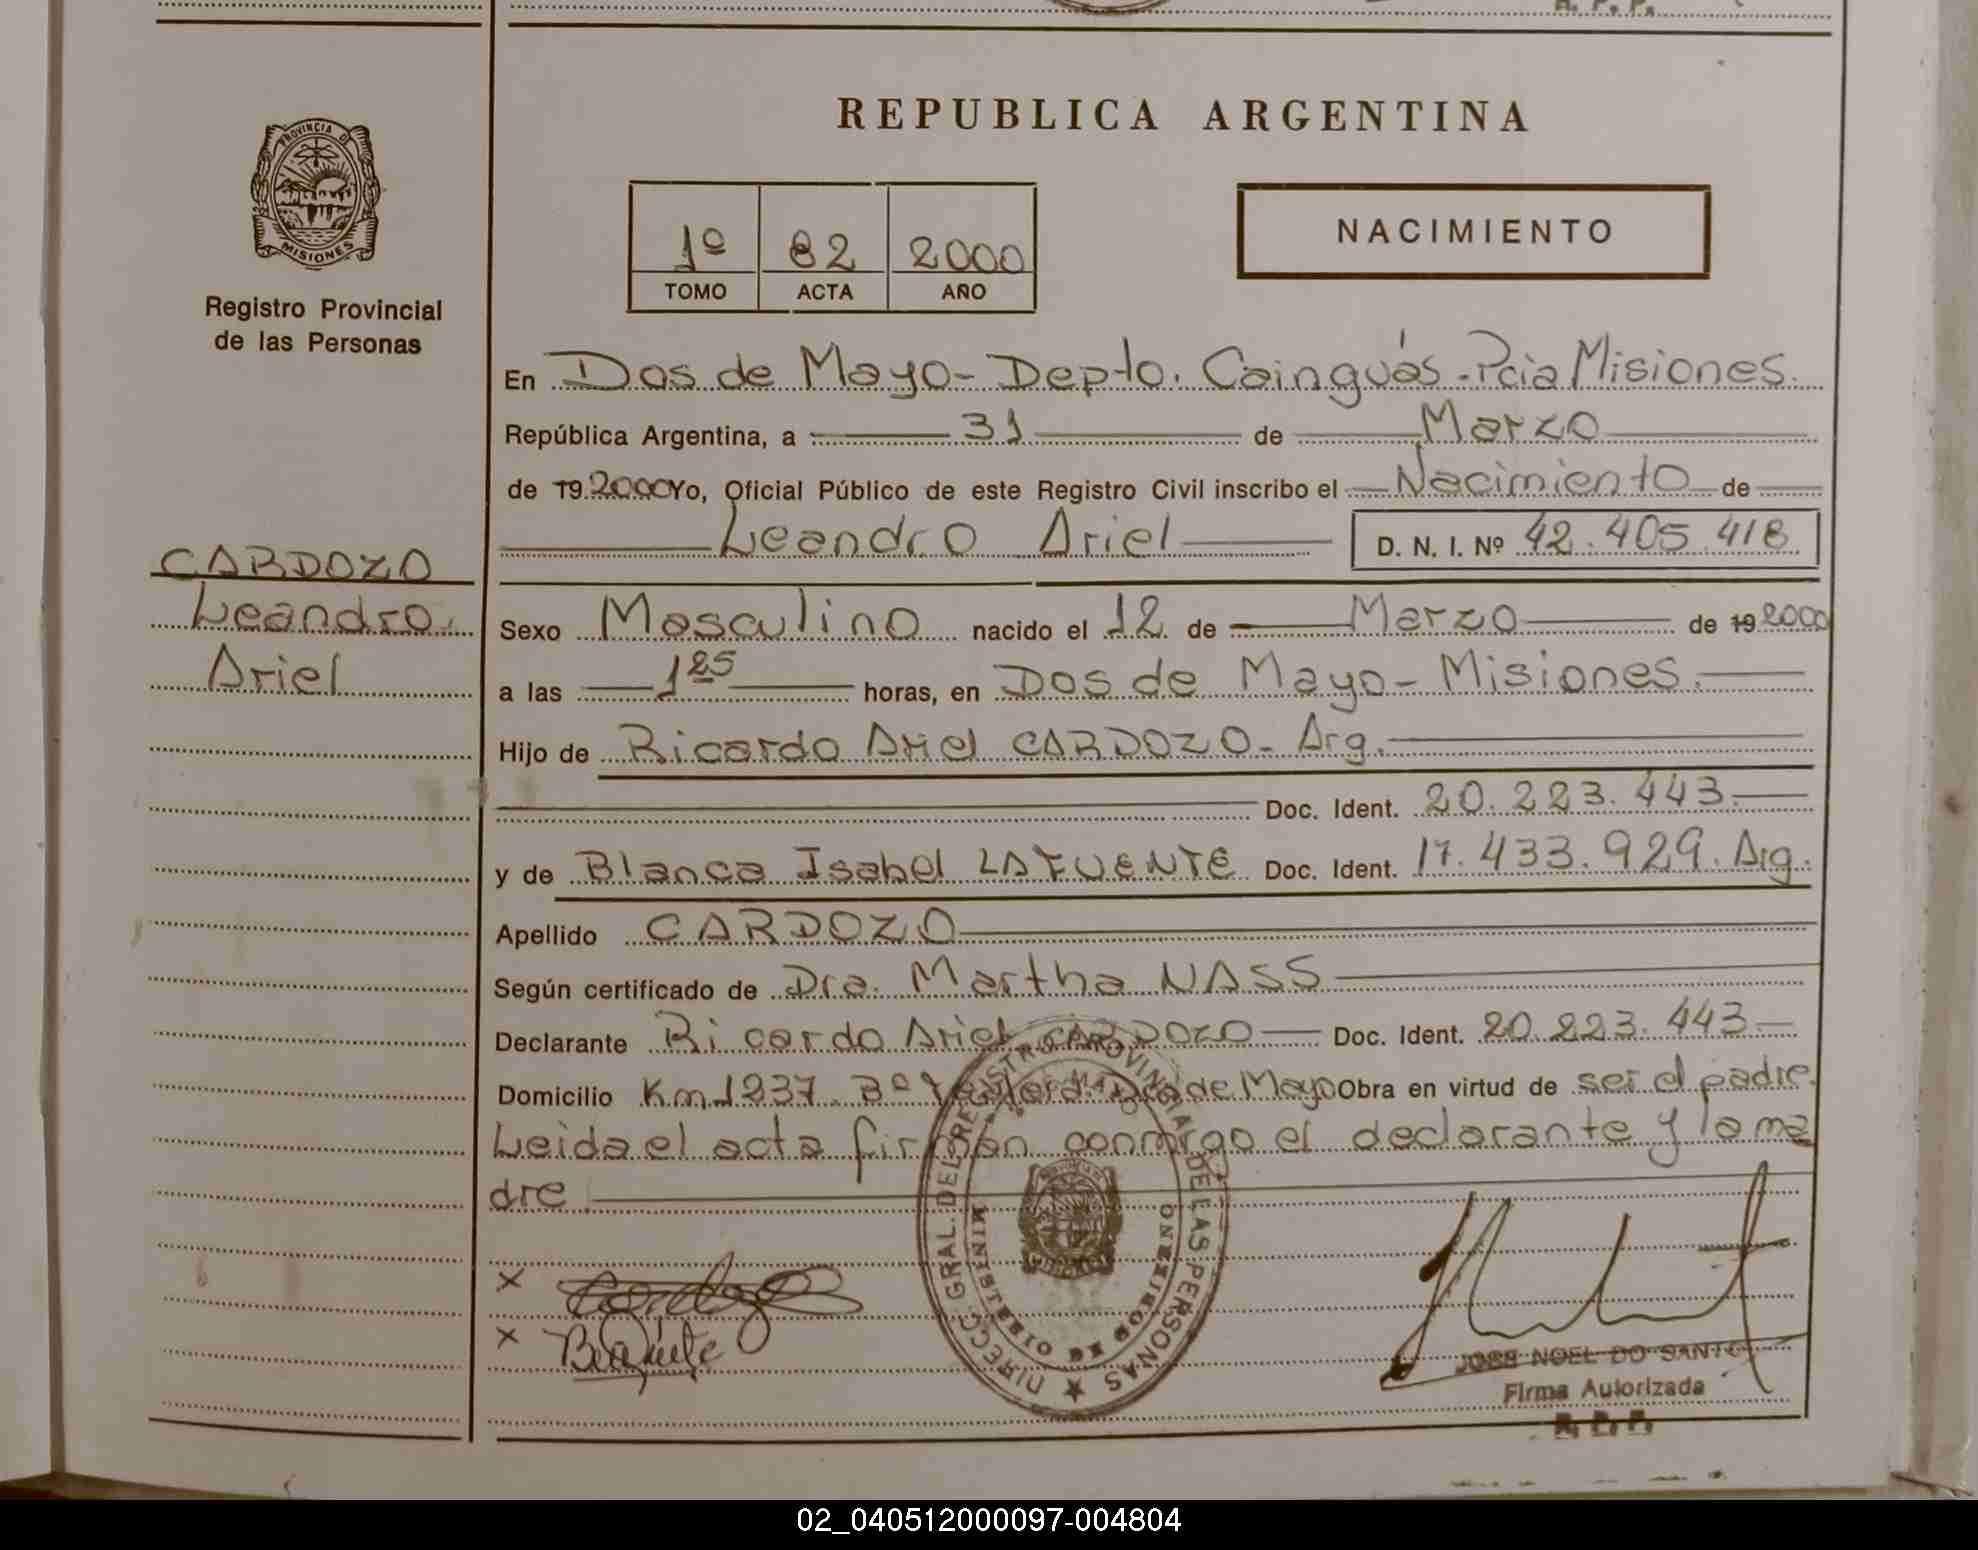 A. P. P.
REPUBLICA ARGENTINA
PROVINCIA DE
MISIONES
Registro Provincial
de las Personas
1º 82 2000
TOMO ACTA AÑO
NACIMIENTO
En Dos de Mayo - Depto. Cainguás - Pcia Misiones.
República Argentina, a 31 de Marzo
de 19 2000 Yo, Oficial Público de este Registro Civil inscribo el Nacimiento de
Leandro Ariel D. N. I. Nº 42.405.418
CARDOZO
Leandro
Ariel
Sexo Masculino nacido el 12 de Marzo de 19 2000
a las 1 25 horas, en Dos de Mayo - Misiones.
Hijo de Ricardo Ariel CARDOZO - Arg.
Doc. Ident. 20.223.443
y de Blanca Isabel LAFUENTE Doc. Ident. 17.433.929. Arg.
Apellido CARDOZO
Según certificado de Dra. Martha NASS
Declarante Ricardo Ariel CARDOZO Doc. Ident. 20.223.443
Domicilio Km 1237 3º de Mayo Obra en virtud de ser el padre.
Leida el acta firman conmigo el declarante y la ma
dre
DIRECC. GRAL. DEL REGISTRO PROVINCIAL DE LAS PERSONAS
MINISTERIO DE GOBIERNO
X
X
JOSE NOEL DO SANTO
Firma Autorizada
02_040512000097-004804